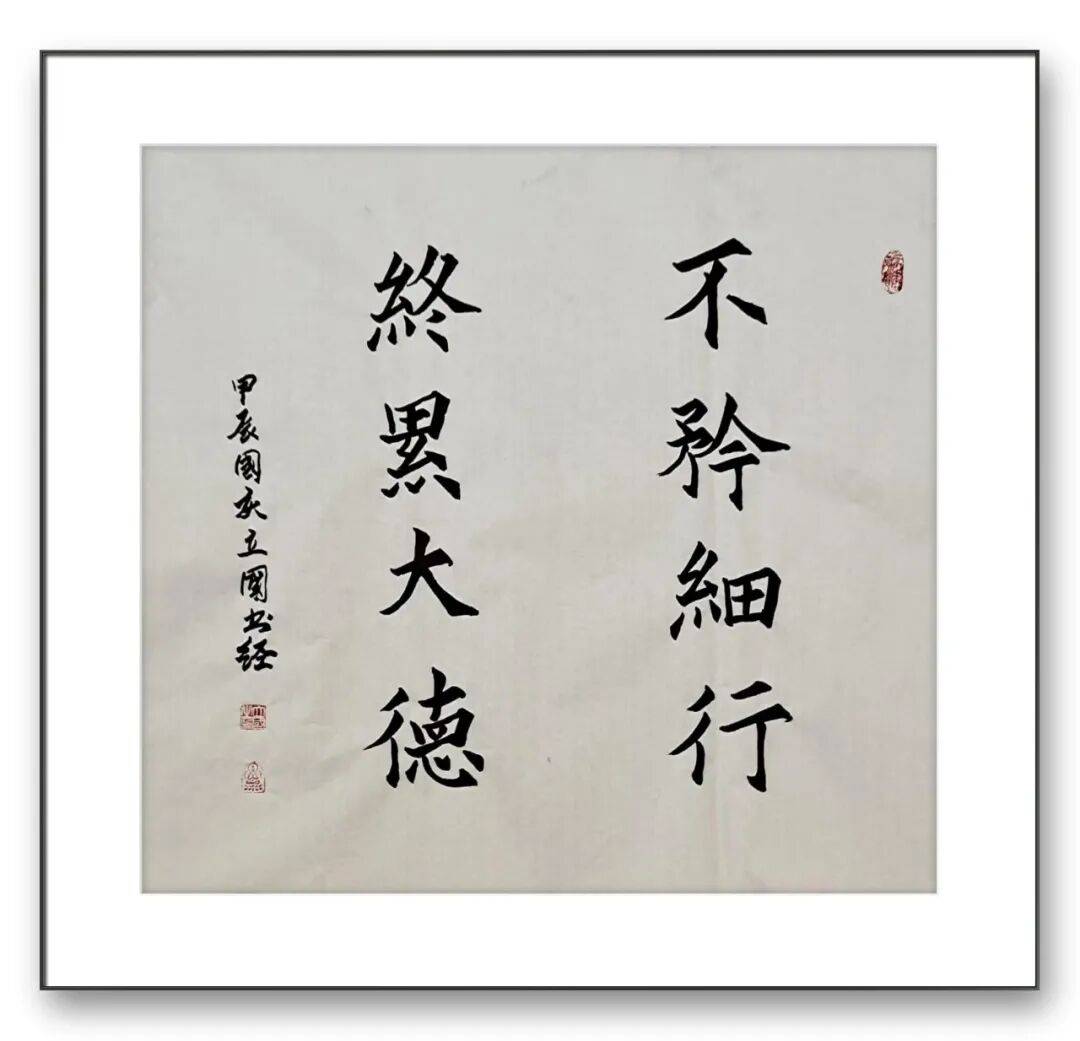 不矜細行
終累大德
甲辰國秋立國书经